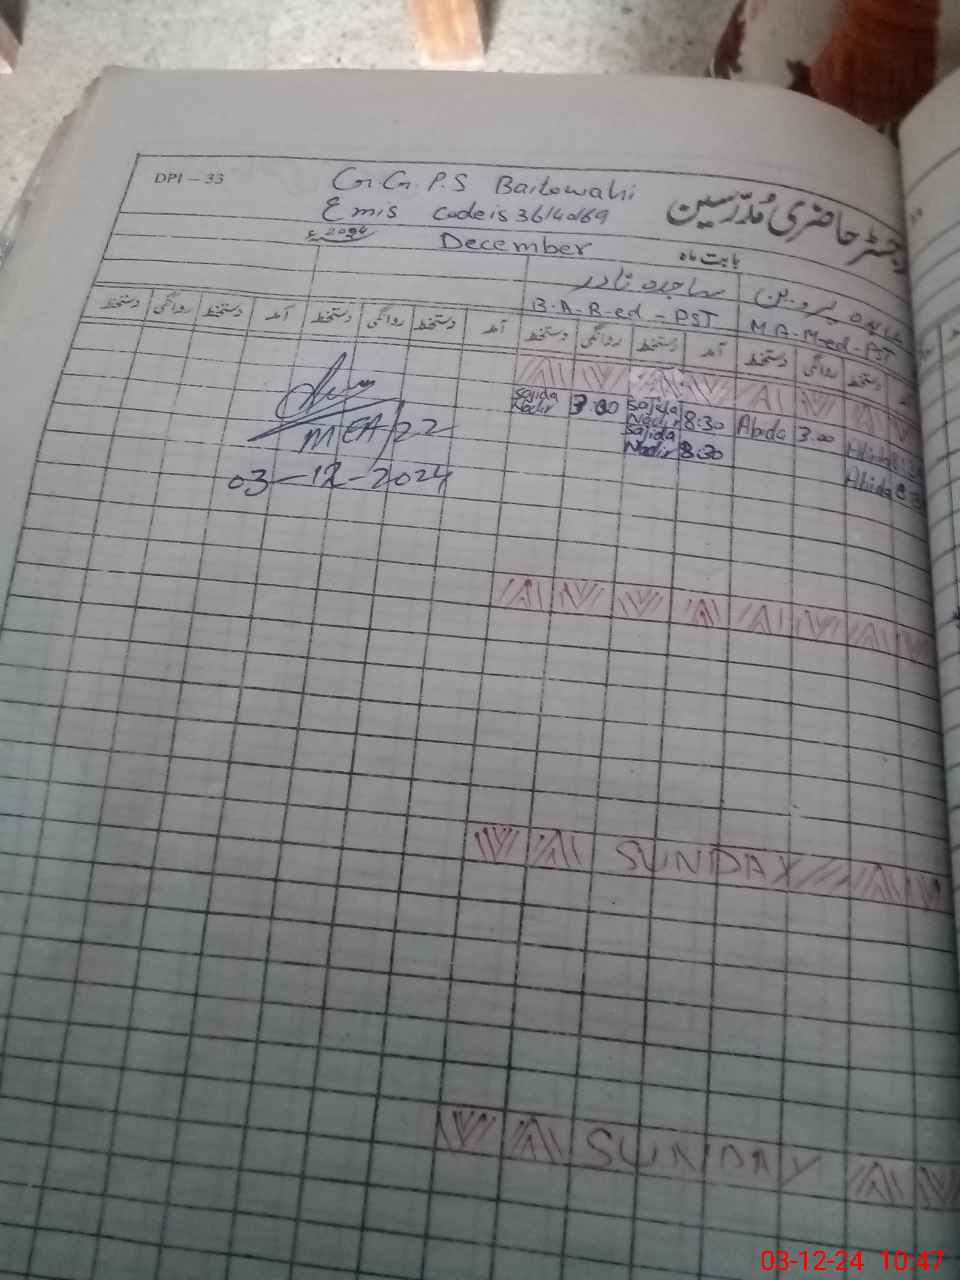 DPI - 33
G.G.P.S Baitowahi
رجسٹر حاضری مُدرّسین
Emis Code is 36140169
بابت ماہ December 2024ء
ساجدہ نادر
B.A-B-ed-PST
M.A-M-ed-PST
آمد دستخط روانگی دستخط آمد دستخط روانگی دستخط آمد دستخط روانگی دستخط آمد دستخط روانگی دستخط
Abida 3.00 Abida 8:30 Sajida Nadir 3.00 Sajida Nadir
Abida 8:30 Sajida Nadir
MEA/22
03-12-2024
SUNDAY
SUNDAY
03-12-24 10:47